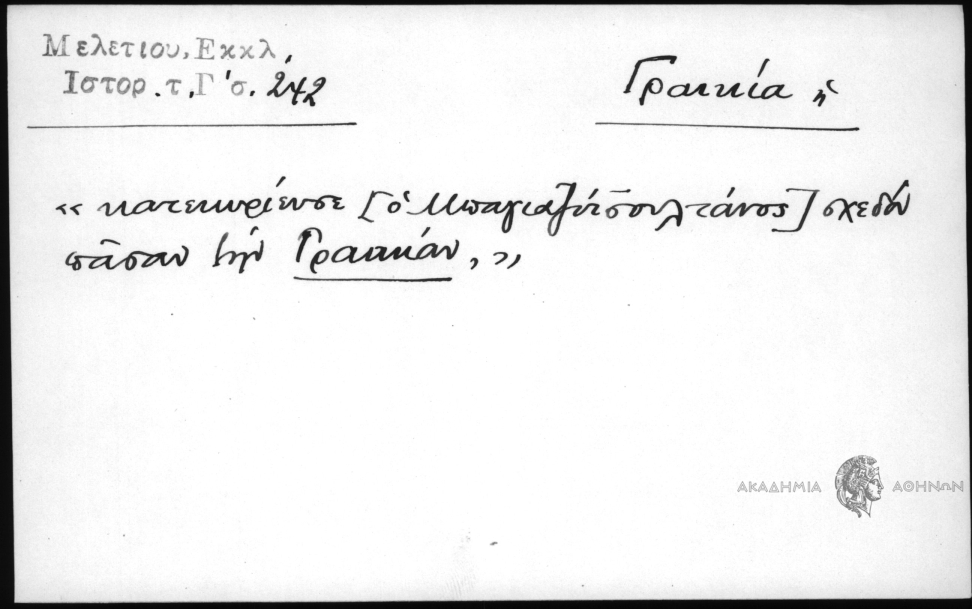 Μελετιου, Εκκλ.
Ιστορ. τ. Γ' σ. 242
Γραικία ἡ
«κατεκυρίευσε [ὁ Μπαγιαζὴτ σουλτάνος] σχεδὸν
πᾶσαν τὴν Γραικίαν,»
ΑΚΑΔΗΜΙΑ ΑΘΗΝΩΝ